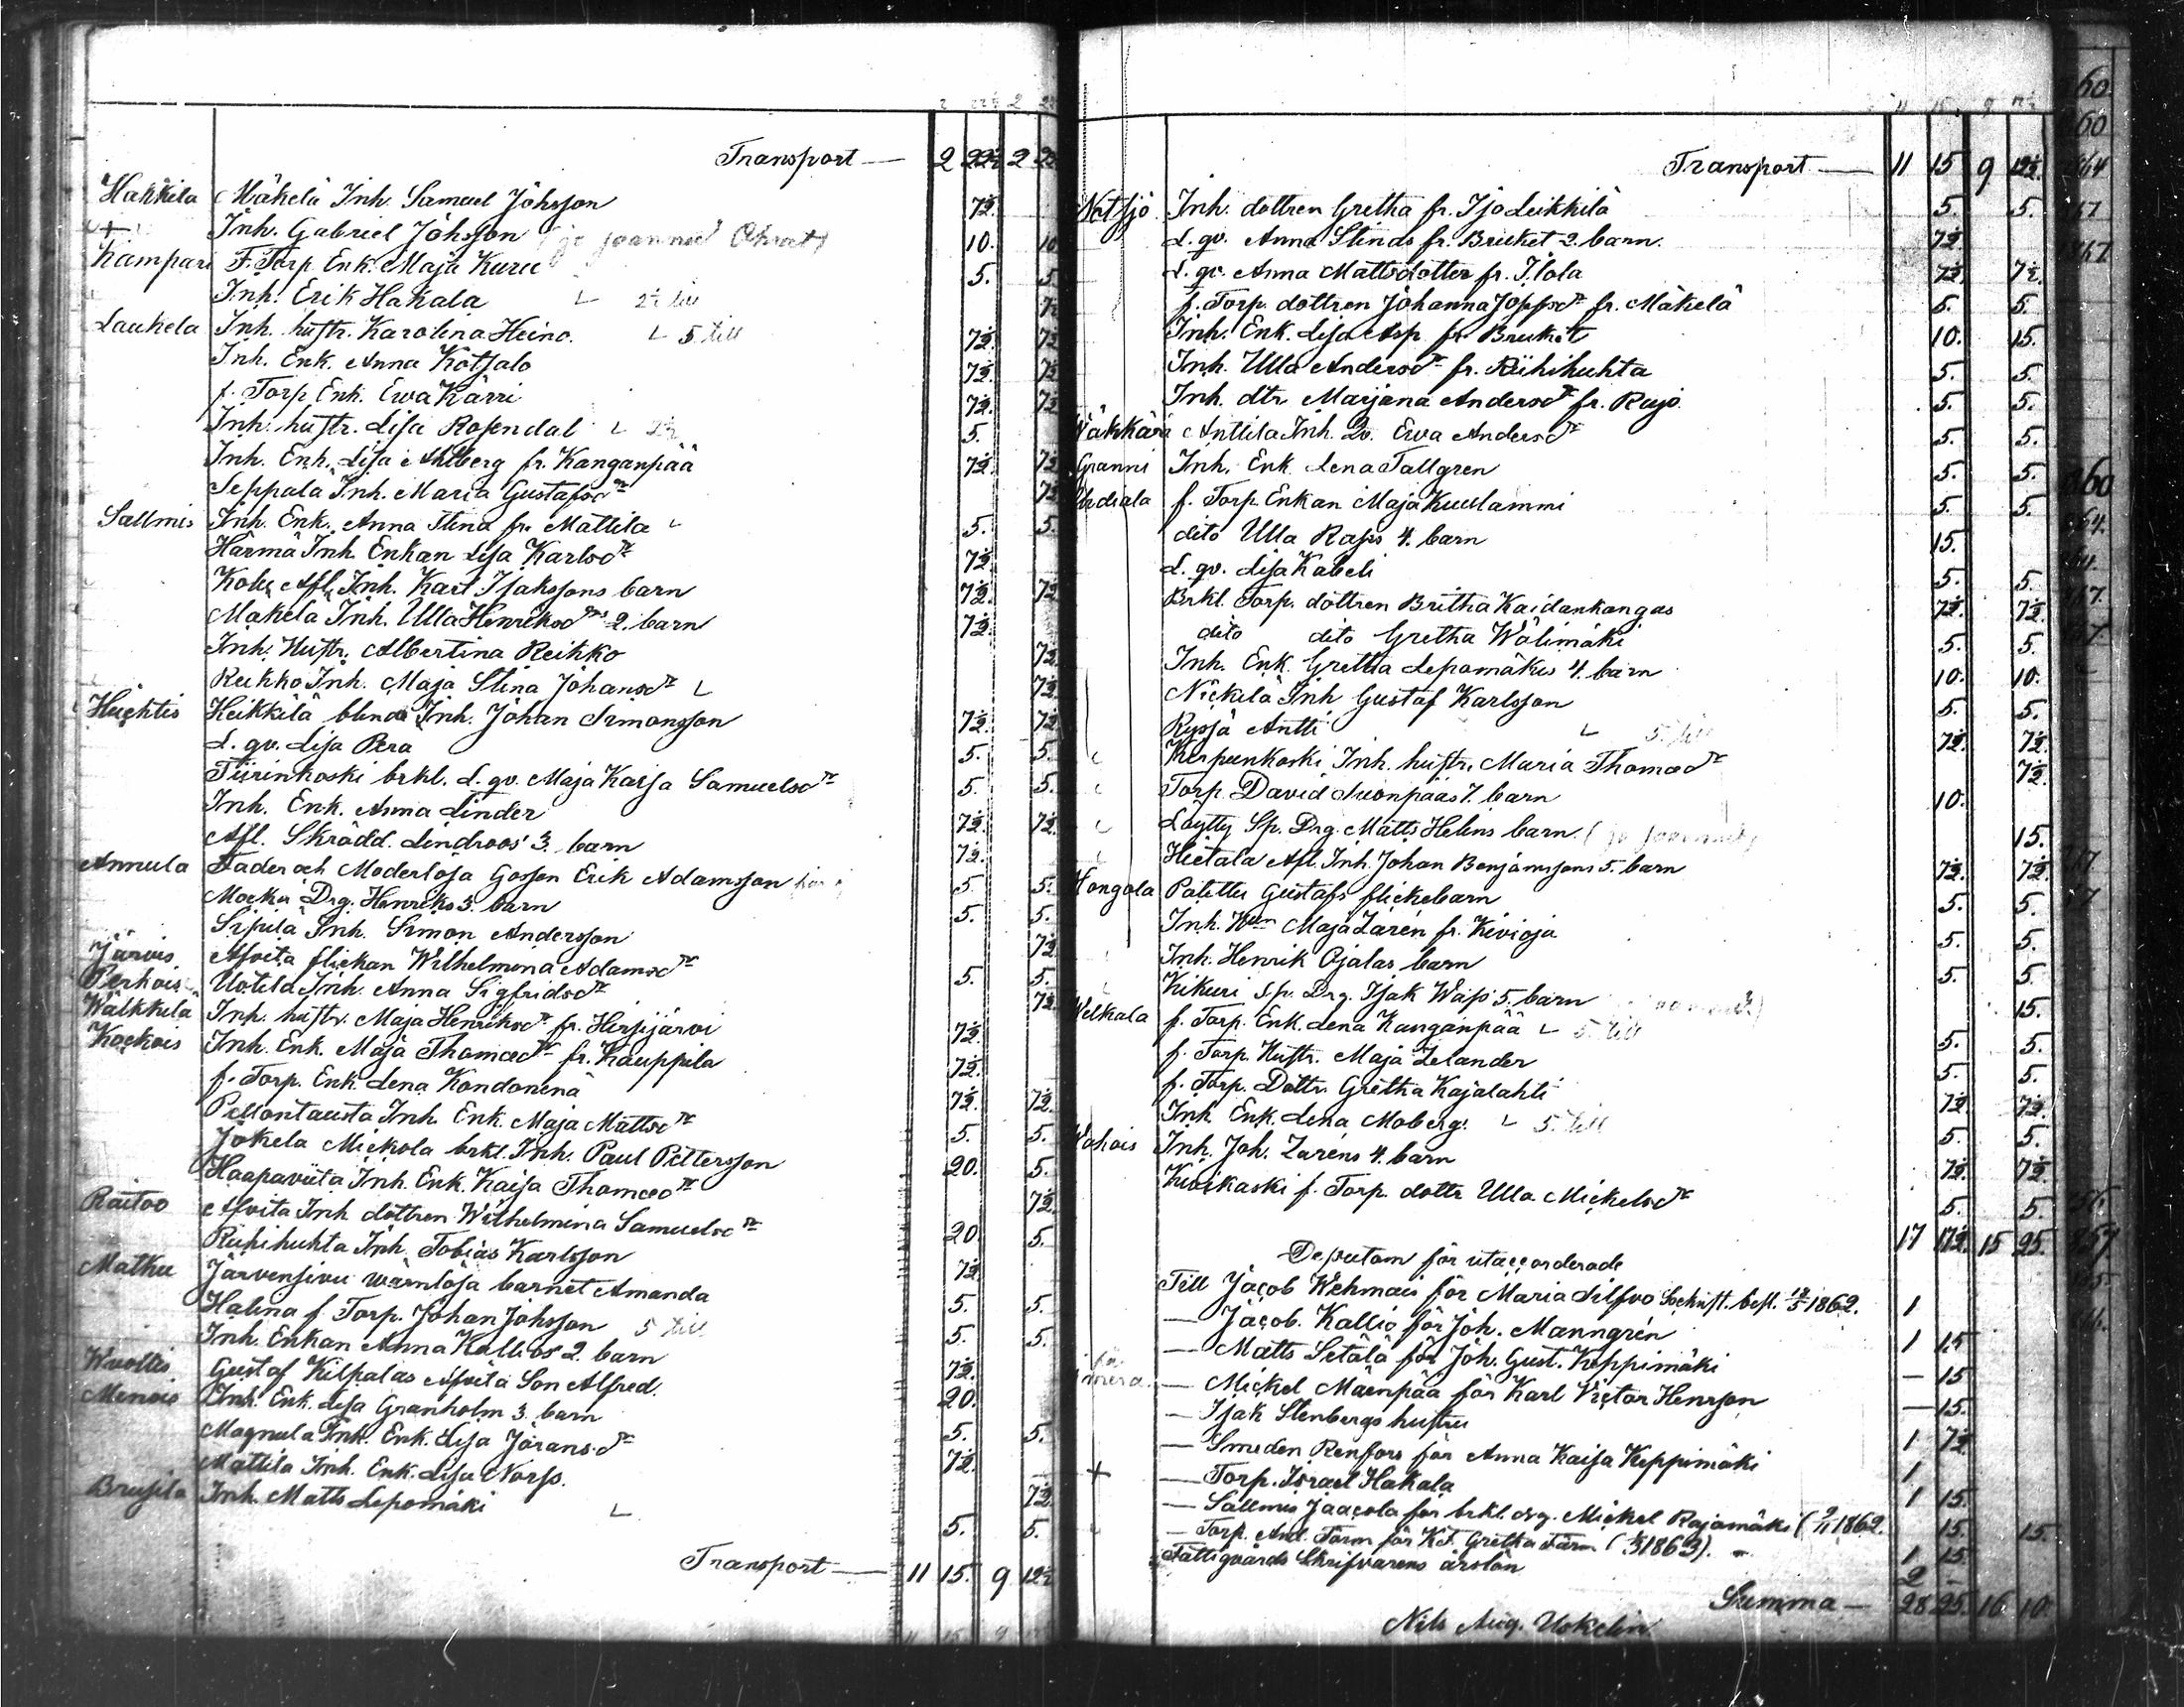 Transport — 2 22½ 2 22
Hakkila Mäkelä Inh. Samuel Johsson 7½.
Inh. Gabriel Johsson 10. 10
Kämpari F. Torp. Enk. Maja Kuru 5. 5.
Inh. Erik Hakala 2½ till
Laukela Inh. hustr. Karolina Heino. 5. till 7½ 7½
Inh. Enk. Anna Kotsalo 7½. 7½
f. Torp Enk. Ewa Kärri 7½. 7½
Inh. hustr. Lisa Rosendal 5.
Inh. Enk. Lisa Ahlberg fr. Kanganpää 7½ 7½
Seppälä Inh. Maria Gustafsdr 7½
Sallmis Inh. Enk. Anna Stina fr. Mattila 5. 5.
Härmä Inh. Enkan Lisa Karlsdr 7½
Afl. Inh. Karl Isakssons barn 7½. 7½
Mäkelä Inh. Ulla Henriksdrs 2. barn 7½.
Inh. Hustr. Albertina Reikko 7½
Reikko Inh. Maja Stina Johansdr 7½.
Huhtis Heikkilä blinda Inh. Johan Simonsson 7½. 7½
L. qv. Lisa Pera 5. 5.
Tiirinkoski brkl. L. qv. Maja Kaisa Samuelsdr 5. 5.
Inh. Enk. Anna Linder 7½. 7½.
Afl. Skrädd. Lindroos' 3. barn 7½.
Annula Fader och Moderlösa Gossen Erik Adamsson 5. 5.
Drg. Henriks 3. barn 5. 5.
Sipilä Inh. Simon Andersson 7½
Järvis Afvita flickan Wilhelmina Adamsdr 5. 5.
Perhois Uotila Inh. Anna Sigfridsdr 7½
Wälkkilä Inh. hustr. Maja Henriksdr fr. Hirsijärvi 7½.
Kockois Inh. Enk. Maja Thomasdr fr. Kauppila 7½.
f. Torp. Enk. Lena Kondonenä 7½. 7½.
Pellontausta Inh. Enk. Maja Mattsdr 5. 5.
Jokela Mickola brkl. Inh. Paul Pettersson 20. 5.
Haapaviita Inh. Enk. Kaisa Thomasdr 7½
Raitoo Afvita Inh. döttren Wilhelmina Samuelsdr 20. 5.
Riihihuhta Inh. Tobias Karlsson 7½
Mathu Järvensivu wärnlösa barnet Amanda 5. 5.
Halina f. Torp. Johan Johsson 5 till 5. 5.
Inh. Enkan Anna Kallios 2. barn 7½.
Wuoltis Gustaf Kilpalas Afvita Son Alfred. 20.
Menois Inh. Enk. Lisa Granholm 3. barn 5. 5.
Magnula Inh. Enk. Lisa Joransdr 7½.
Mattila Inh. Enk. Lisa Norss. 7½
Brusila Inh. Matts Lepomäki 5. 5.
Transport — 11 15. 9 12½
Transport — 11 15 9 12½.
Matsjö Inh. dottren Gretha fr. Isoleikkilä 5. 5.
L. qv. Anna Stinas fr. Bruket 2. barn. 7½.
L. qv. Anna Mattsdotter fr. Ilola 7½. 7½.
f. Torp. dottren Johanna Josefsdr fr. Mäkelä 5. 5.
Inh. Enk. Lisa Asp fr. Bruket 10. 15.
Inh. Ulla Andersdr fr. Riihihuhta 5. 5.
Inh. dtr. Marjana Andersdr fr. Rajo 5. 5.
Wäkkärä Anttila Inh. Qv. Ewa Andersdr 5. 5.
Granni Inh. Enk. Lena Tallgren 5. 5.
Urdiala f. Torp. Enkan Maja Kuulammi 5. 5.
dito Ulla Rajas 4. barn 15.
L. qv. Lisa Kabeli 5. 5.
Brkl. Torp. döttren Britha Kaidankangas 7½. 7½.
dito dito Gretha Wälimäki 5. 5.
Inh. Enk. Gretha Lepomäkis 4. barn 10. 10.
Nickelä Inh. Gustaf Karlsson 5. 5.
Ryssä Antti 5. till 7½. 7½.
Kerpunkoski Inh. hustr. Maria Thomasdr 7½.
Torp. David Suonpääs 7. barn 10.
Löytty Sp. Drg. Matts Helins barn 15.
Hietala Afl. Inh. Johan Benjamssons 5. barn 7½. 7½.
Hongola Palttu Gustafs flickebarn 5. 5.
Inh. Maja Zarén fr. Kivioja 5. 5.
Inh. Henrik Ojalas barn 5. 5.
Kikuri Sp. Drg. Isak Wäis 5. barn 15.
Welkala f. Torp. Enk. Lena Kanganpää 5. till 5. 5.
f. Torp. Hustr. Maja Zelander 5. 5.
f. Torp. Dottr. Gretha Kajalahti 7½. 7½.
Inh. Enk. Lena Moberg. 5. till 5. 5.
Wahois Inh. Joh. Zaréns 4. barn 7½. 7½.
Kivikaski f. Torp. dottr Ulla Mickelsdr 5. 5.
17 17½. 15 25.
Deputam för utaccorderade
Till Jacob Wehmais för Maria Silfvo Socknst. besl. 12/5 1862. 1
— Jacob. Kallio för Joh. Manngrén 1 15
— Matts Setälä för Joh. Gust. Keppimäki — 15
— Mickel Mäenpää för Karl Victor Henrson — 15.
— Isak Stenbergs hustru 1 7½
— Smeden Renfors för Anna Kaisa Keppimäki 1
+ — Torp. Israel Hakala 1 15.
— Sallmis Jaacola för brkl. drg. Mickel Rajamäki (9/11 1862. 15. 15.
— Torp. And. Färm för K.F. Gretha Färm (1863). 1 15.
Fattigvårds Skrifvarens årslön 2 —
Summa — 28 25. 16 10.
Nils Aug. Uskelin